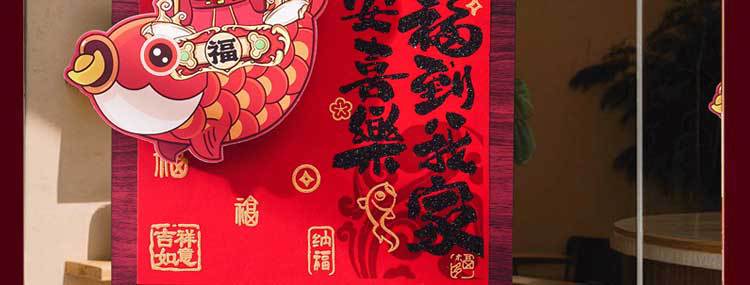 福到我家
安喜樂
福
福
福
吉祥如意
纳福
福